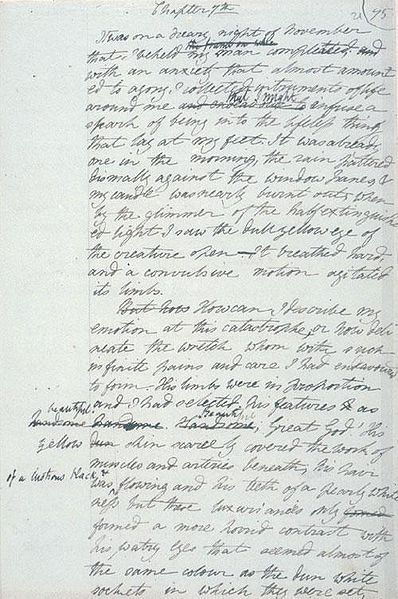 Chapter 7th
75
It was on a dreary night of November
the frame on whic
that I beheld my man compleated and
with an anxiety that almost amount
ed to agony, I collected instruments of life
that I might
around me and endeavour to infuse a
spark of being into the lifeless thing
that lay at my feet. It was already
one in the morning, the rain pattered
dismally against the window panes, &
my candle was nearly burnt out, when
by the glimmer of the half extinguish
ed light I saw the dull yellow eye of
the creature open — It breathed hard,
and a convulsive motion agitated
its limbs.
But how How can I describe my
emotion at this catastrophe, or how deli
neate the wretch whom with such
infinite pains and care I had endeavoured
to form. His limbs were in proportion
and I had selected his features & as
beautiful
handsome handsome Handsome; Great God! His
beautiful
yellow dun skin scarcely covered the work of
muscles and arteries beneath; his hair
of a lustrous black, &
was flowing and his teeth of a pearly white
ness but these luxuriances only formed
formed a more horrid contrast with
his watry eyes that seemed almost of
the same colour as the dun white
sockets in which they were set